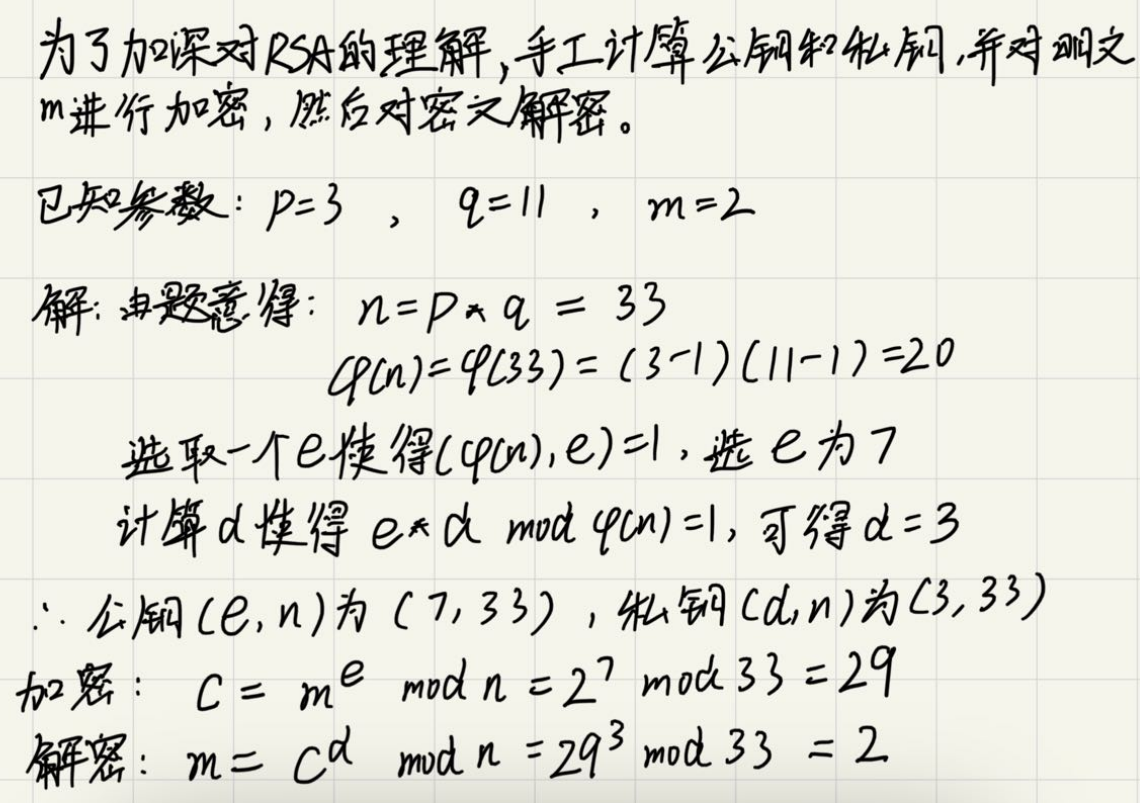 为了加深对RSA的理解,手工计算公钥和私钥,并对明文
m进行加密,然后对密文解密。
已知参数: p=3 , q=11 , m=2
解: 由题意得: n=p*q = 33
φ(n)=φ(33)=(3-1)(11-1)=20
选取一个e使得(φ(n),e)=1,选e为7
计算d使得 e*d mod φ(n)=1, 可得d=3
∴ 公钥(e,n)为(7,33),私钥(d,n)为(3,33)
加密: C = m^e mod n = 2^7 mod 33 = 29
解密: m = C^d mod n = 29^3 mod 33 = 2